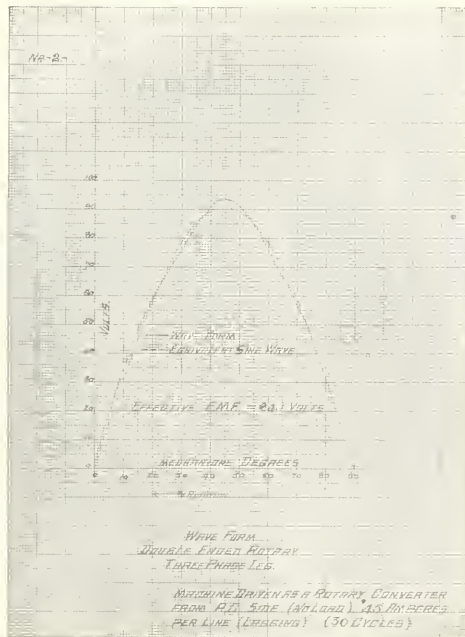 No-2-
100
90
80
70
60
50
VOLTS.
WAVE FORM
EQUIVALENT SINE WAVE
30
20
EFFECTIVE E.M.F. = VOLTS
10
0
MECHANICAL DEGREES
0 10 20 30 40 50 60 70 80 90
WAVE FORM
DOUBLE ENDED ROTARY
THREE PHASE LEG.
MACHINE DRIVEN AS A ROTARY CONVERTER
FROM SIDE (NO LOAD) AMPERES
PER LINE (LAGGING) (30 CYCLES)